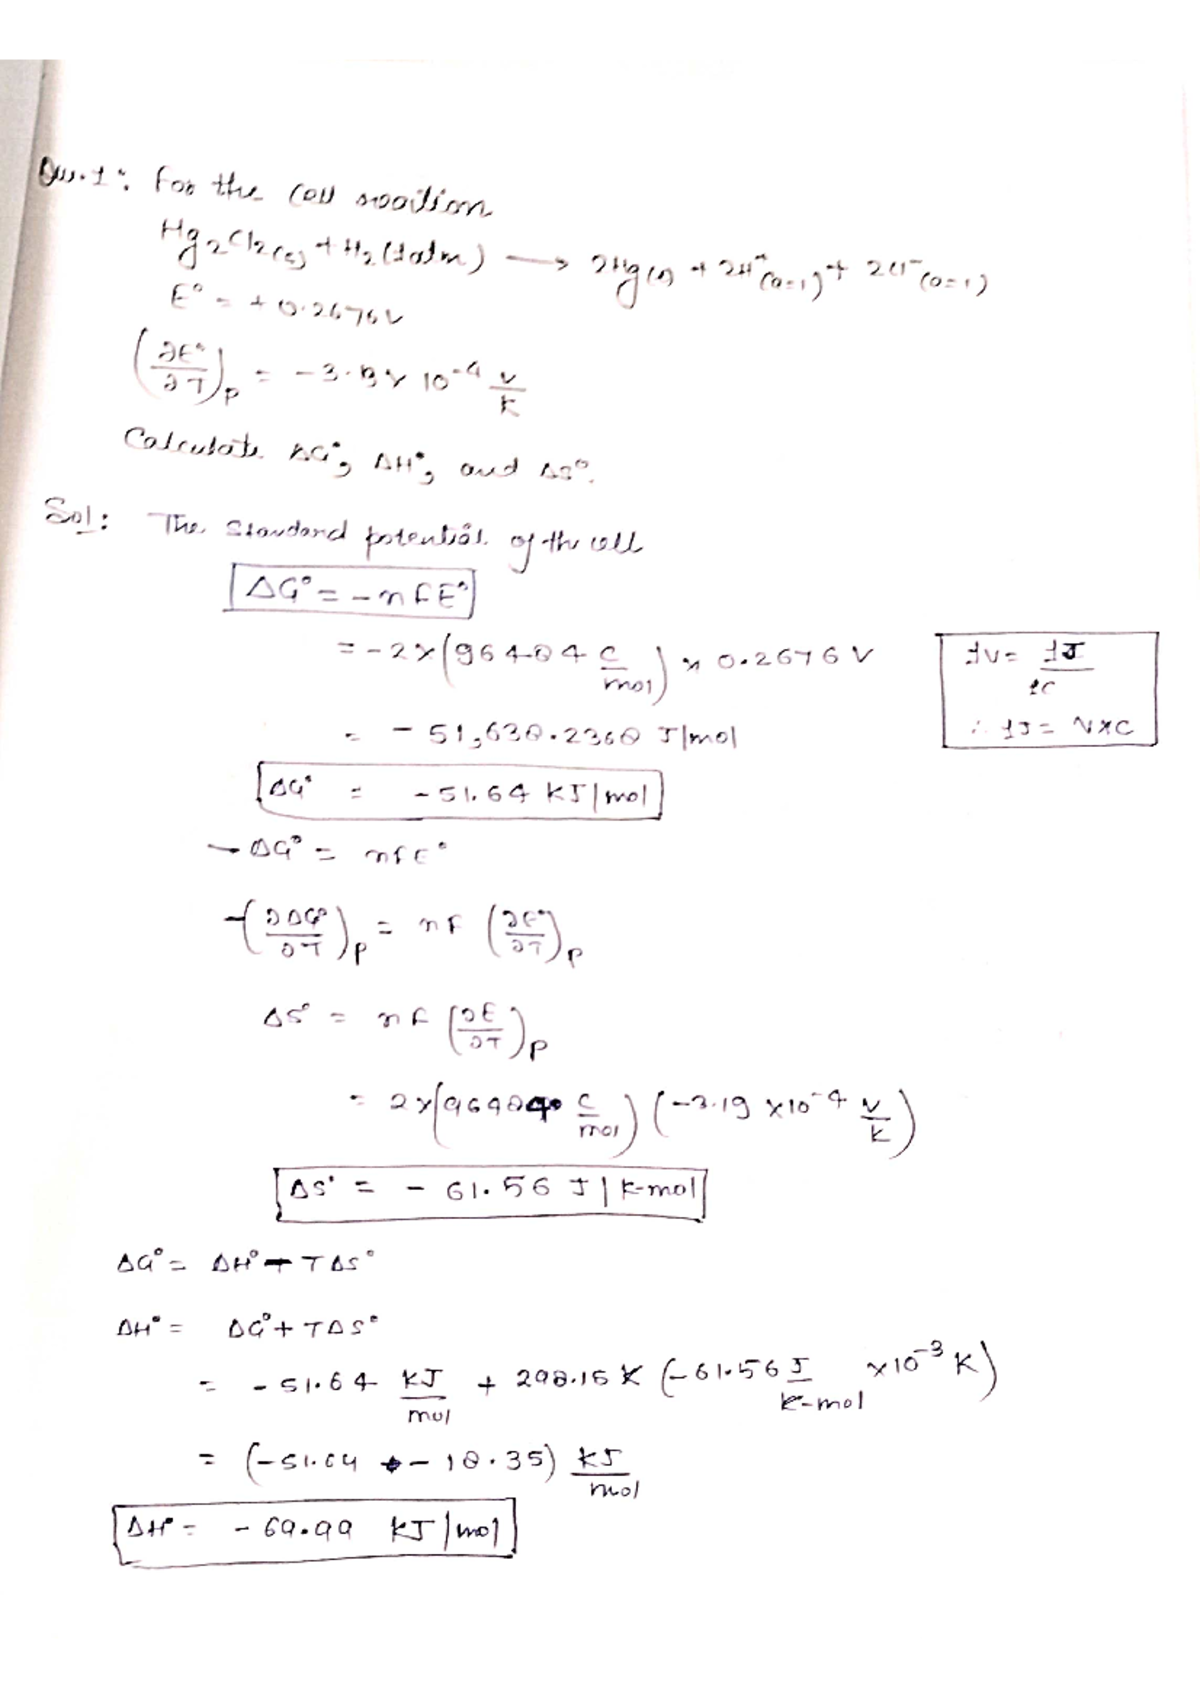 Qu.1: For the cell reaction
Hg₂Cl₂(s) + H₂(1atm) → 2Hg(l) + 2H⁺(a=1) + 2Cl⁻(a=1)
E° = +0.2676V
(∂E°/∂T)P = -3.19 × 10⁻⁴ V/K
Calculate ΔG°, ΔH°, and ΔS°.
Sol: The Standard potential of the cell
ΔG° = -nFE°
= -2×(96484 C/mol) × 0.2676 V
1V = 1J/1C
= -51,638.2368 J/mol
∴ 1J = V×C
ΔG° = -51.64 KJ/mol
-ΔG° = nFE°
-(∂ΔG°/∂T)P = nF (∂E°/∂T)P
ΔS° = nF (∂E/∂T)P
= 2×(96484 C/mol) (-3.19 ×10⁻⁴ V/K)
ΔS° = -61.56 J/K-mol
ΔG° = ΔH° - TΔS°
ΔH° = ΔG° + TΔS°
= -51.64 KJ/mol + 298.15 K (-61.56 J/K-mol ×10⁻³ K)
= (-51.64 + - 18.35) KJ/mol
ΔH° = -69.99 KJ/mol